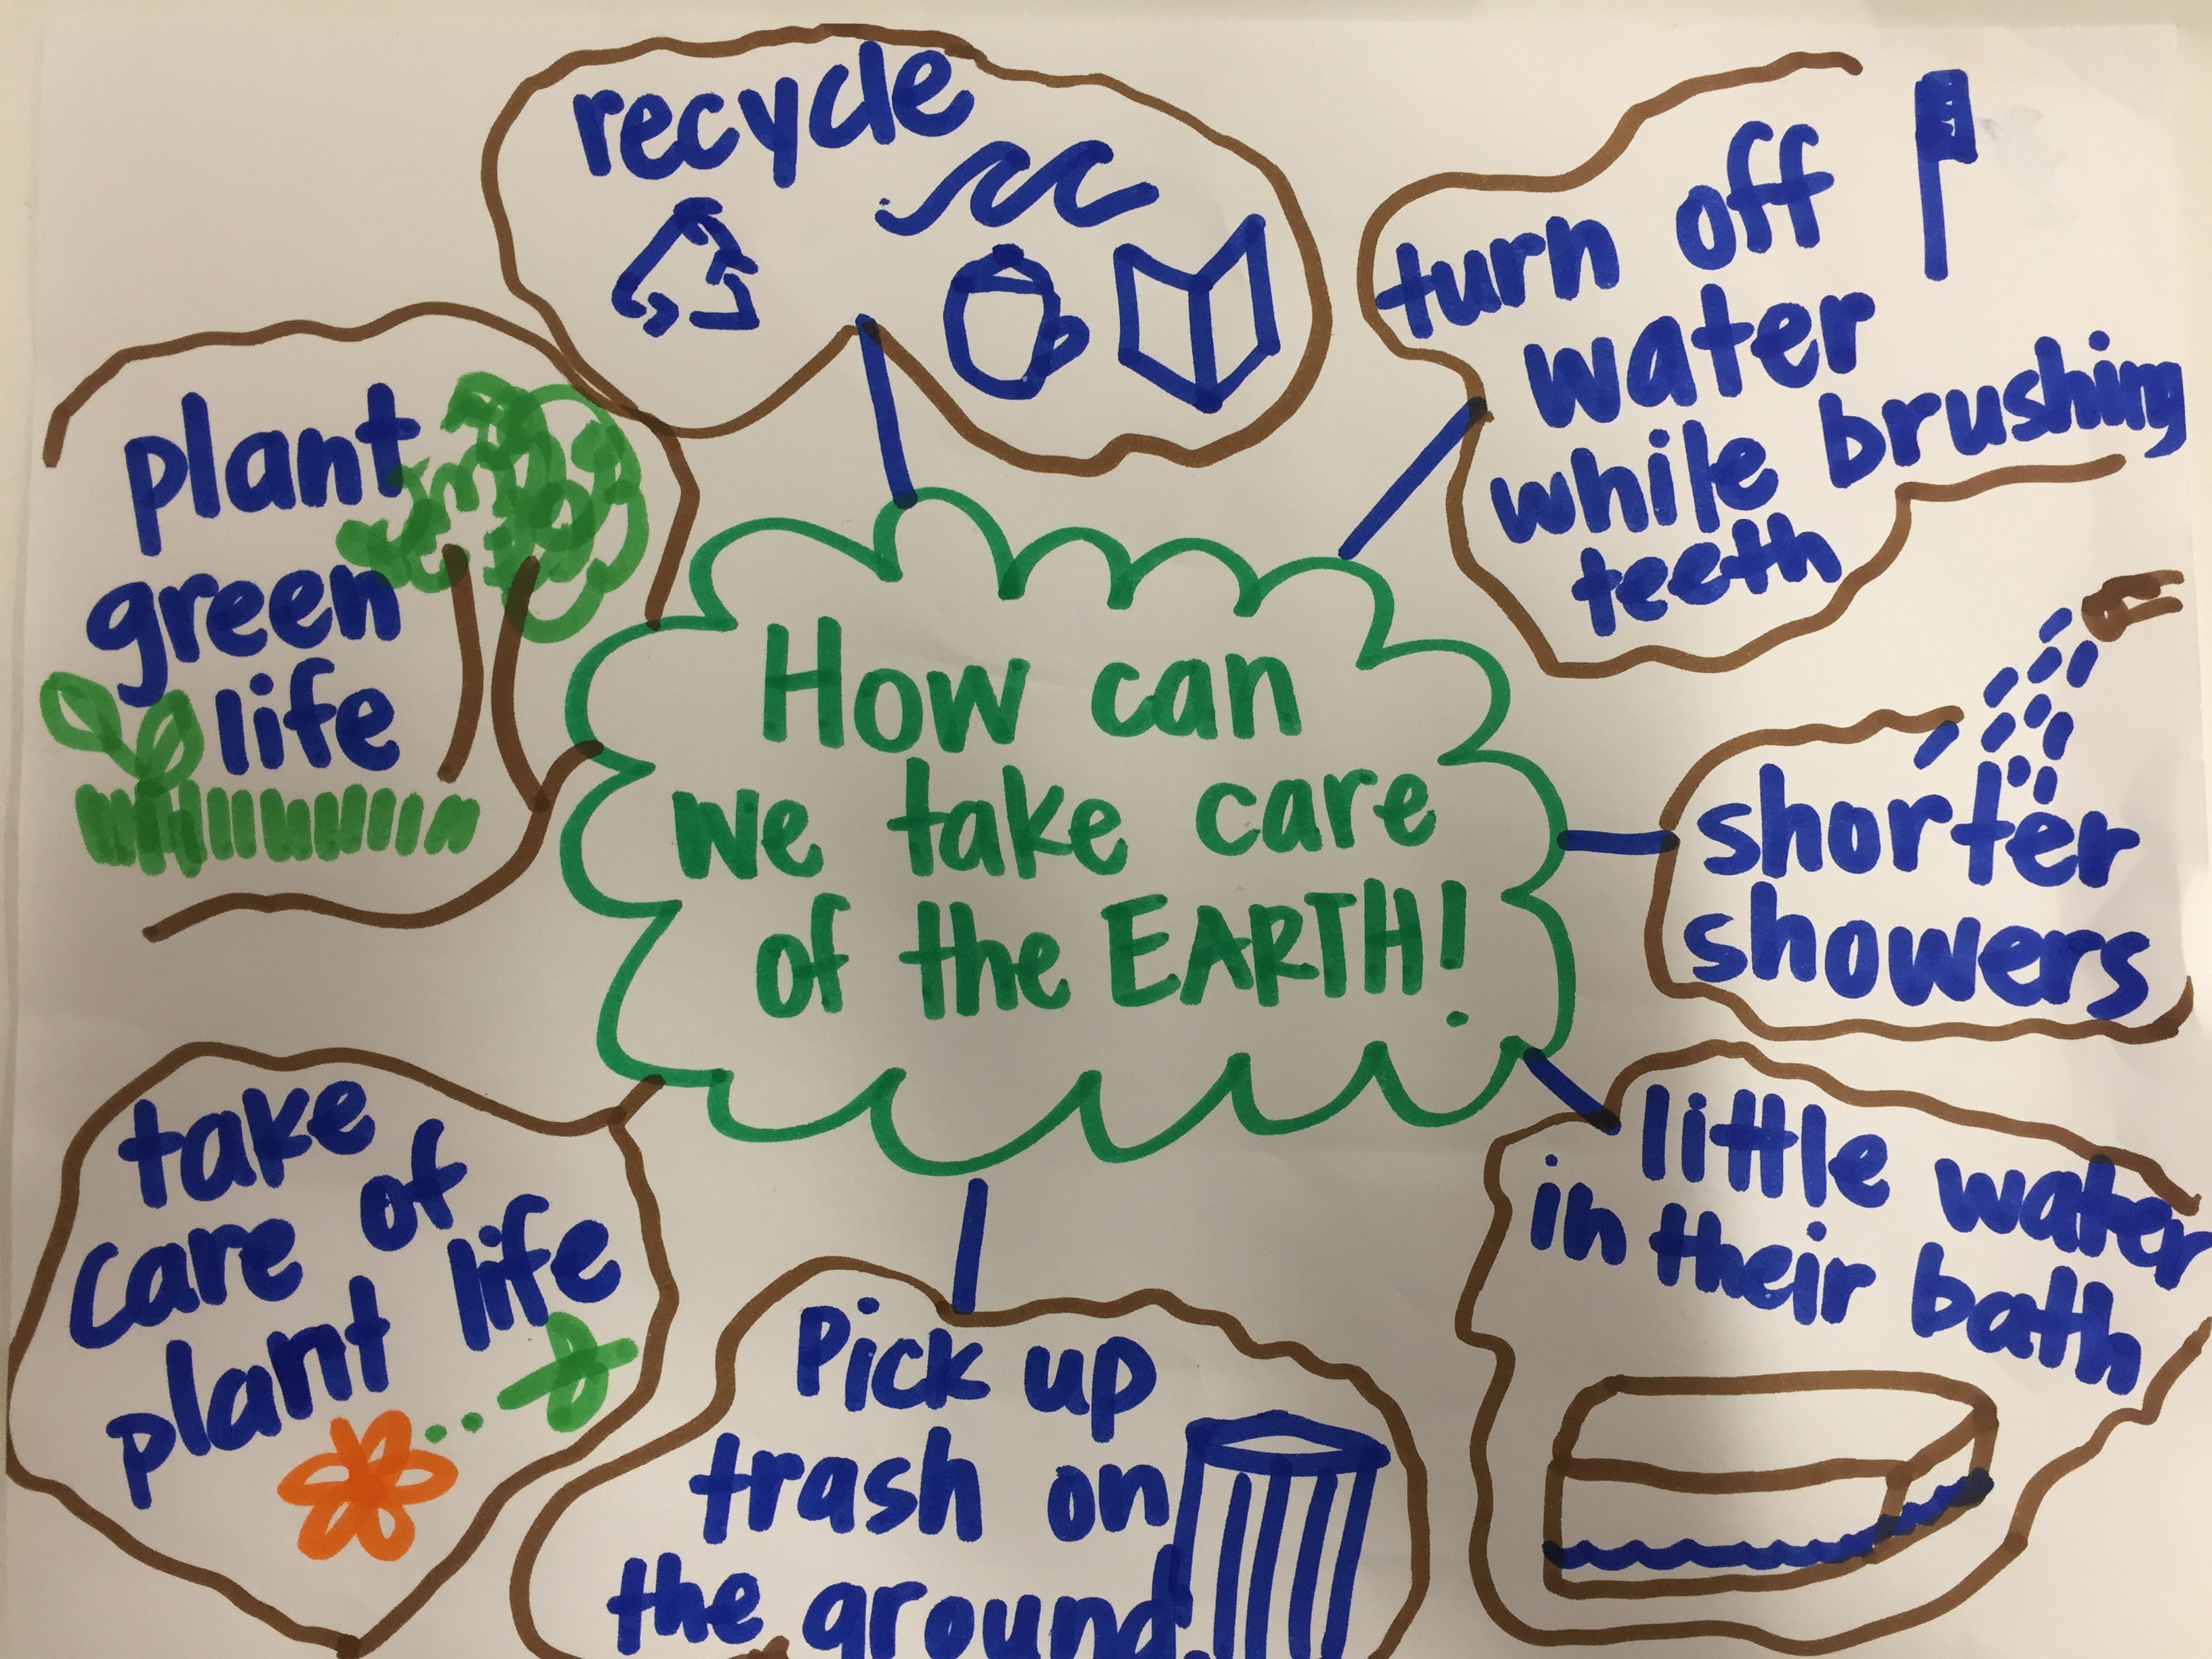 recycle
turn off
water
while brushing
teeth
plant
green
life
How can
we take care
of the EARTH!
shorter
showers
take
care of
plant life
Pick up
trash on
the ground.
little water
in their bath